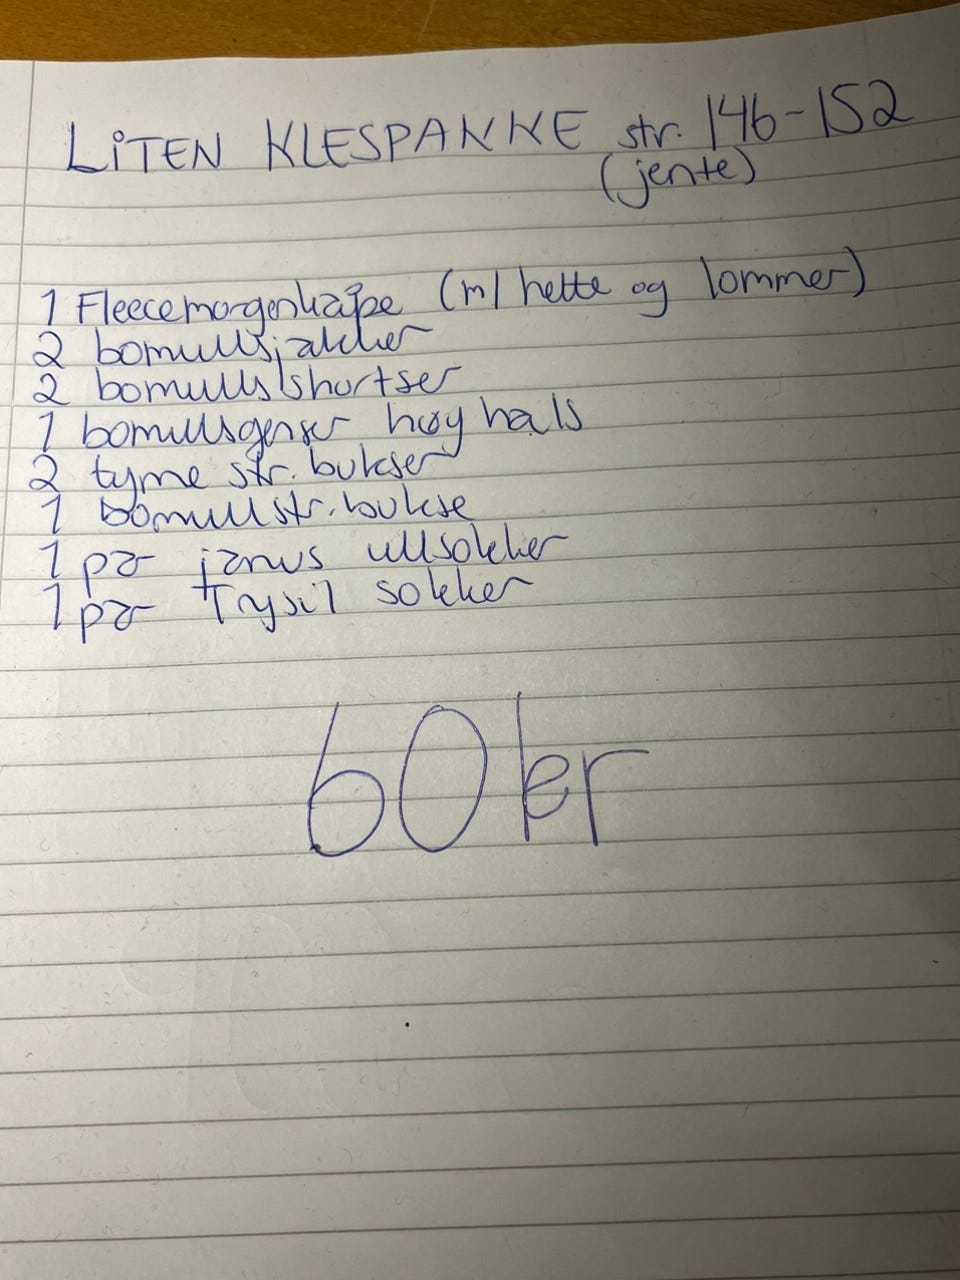 LiTEN KLESPAKKE str. 146-152
(jente)
1 Fleecemorgenkåpe (m/ hette og lommer)
2 bomullsjakker
2 bomullsshortser
1 bomullsgenser høy hals
2 tynne str. bukser
1 bomull str. bukse
1 par janus ullsokker
1 par Trysil sokker
60 kr